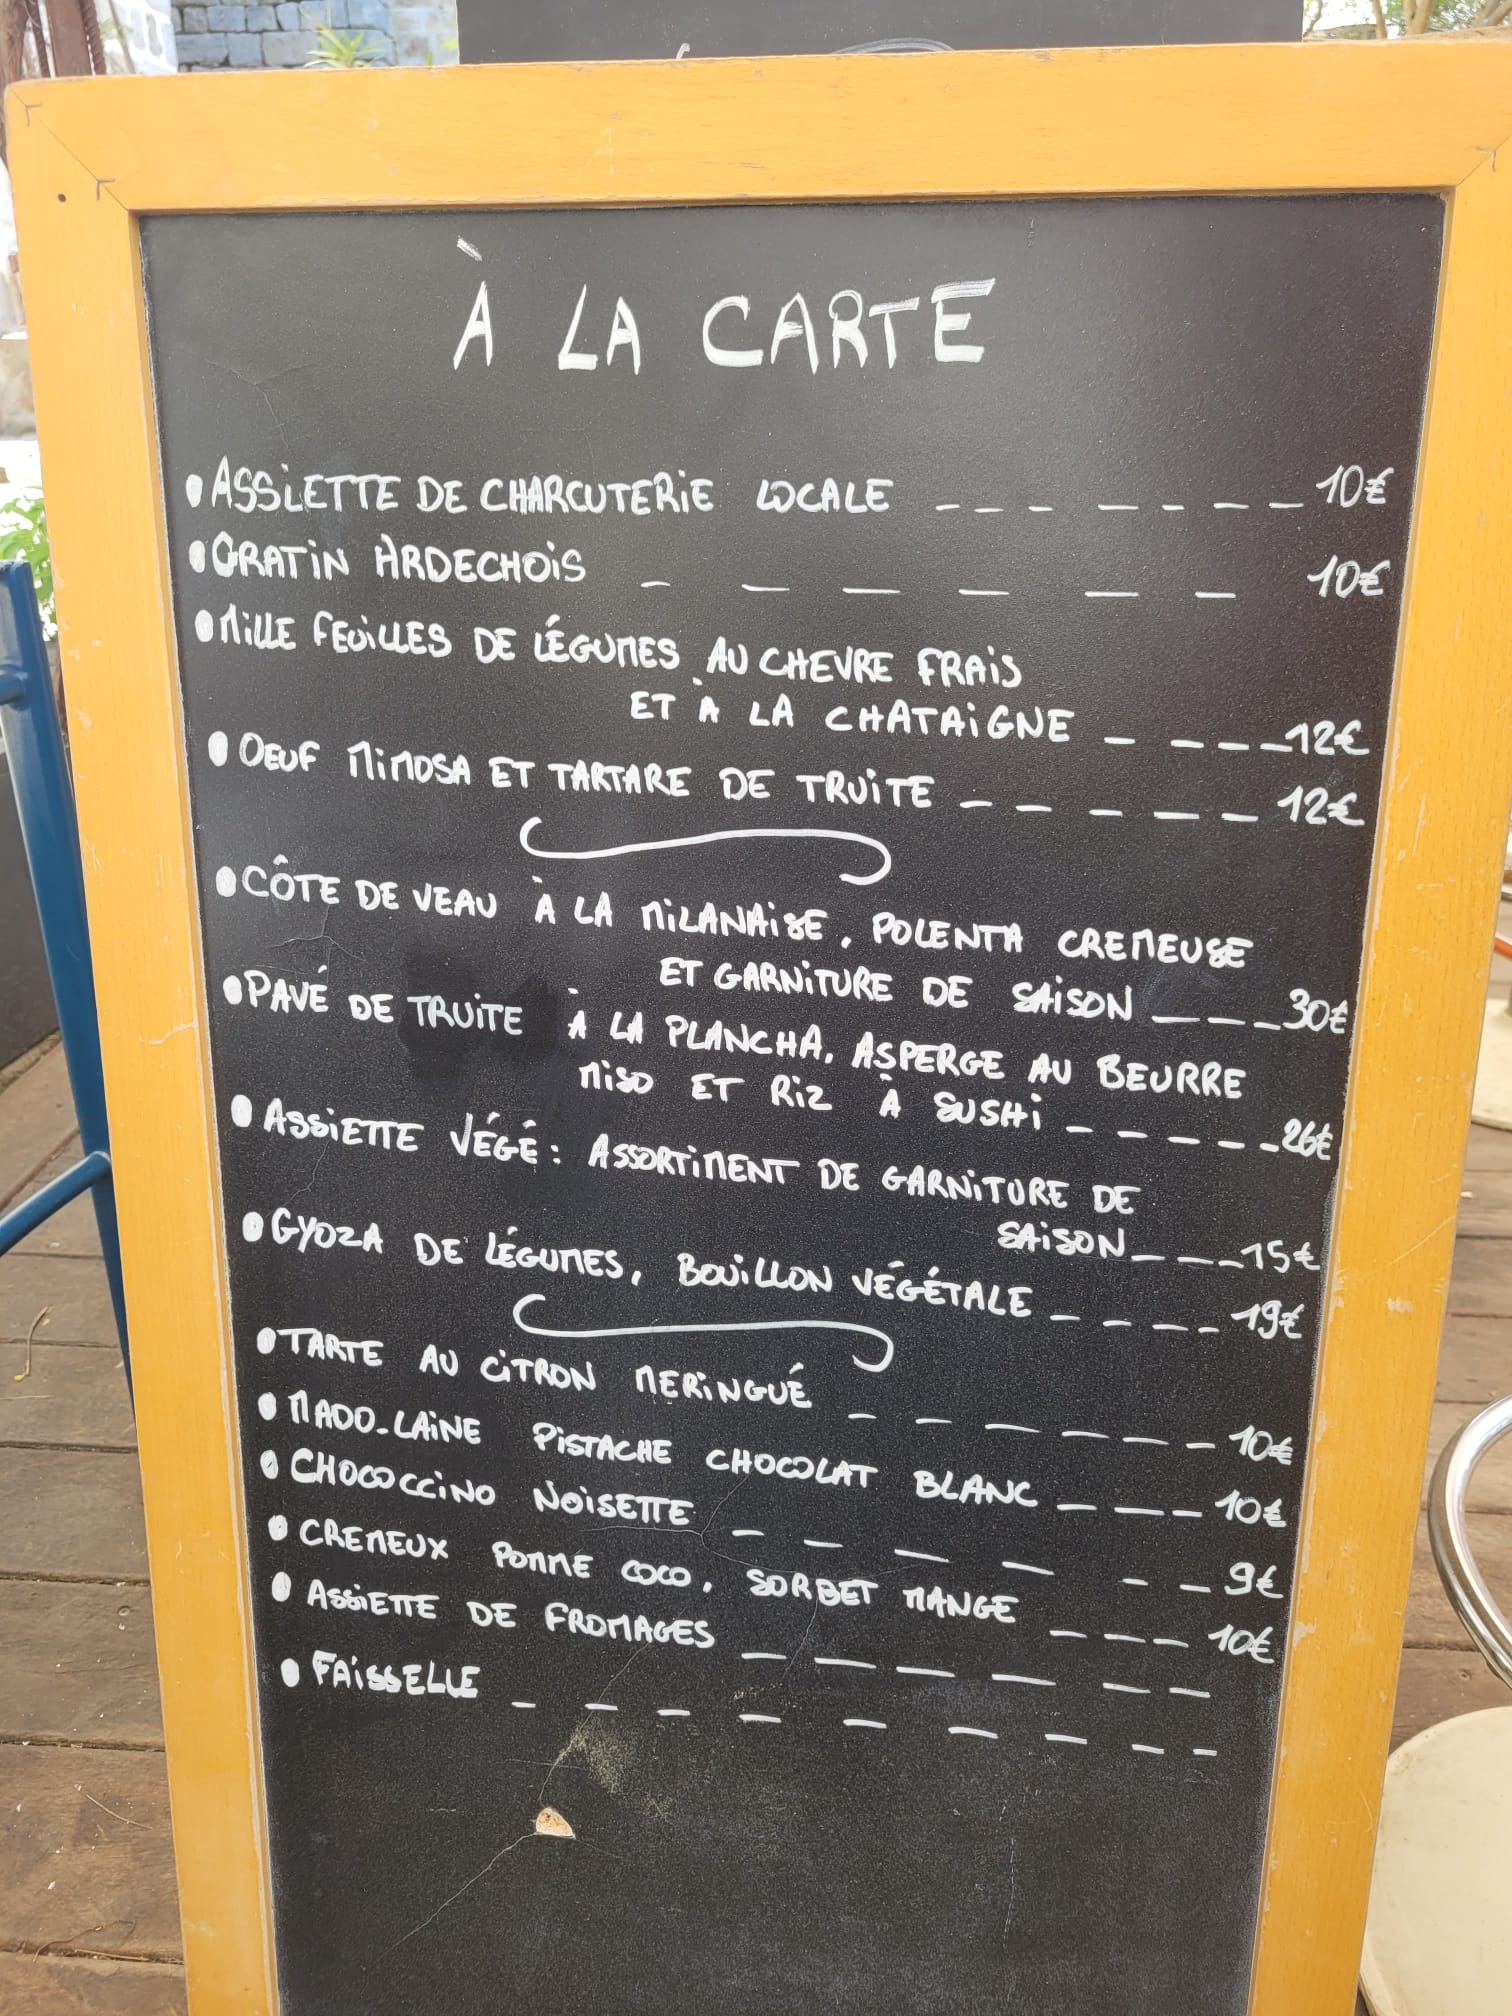 À LA CARTE
• ASSIETTE DE CHARCUTERIE LOCALE _ _ _ _ _ _ _ _ 10€
• GRATIN ARDECHOIS _ _ _ _ _ _ 10€
• MILLE FEUILLES DE LÉGUMES AU CHEVRE FRAIS
ET À LA CHATAIGNE _ _ _ _ _ 12€
• OEUF MIMOSA ET TARTARE DE TRUITE _ _ _ _ _ 12€
• CÔTE DE VEAU À LA MILANAISE, POLENTA CREMEUSE
ET GARNITURE DE SAISON _ _ _ _ 30€
• PAVÉ DE TRUITE À LA PLANCHA, ASPERGE AU BEURRE
MISO ET RIZ À SUSHI _ _ _ _ _ _ 26€
• ASSIETTE VÉGÉ : ASSORTIMENT DE GARNITURE DE
SAISON _ _ _ _ 15€
• GYOZA DE LÉGUMES, BOUILLON VÉGÉTALE _ _ _ _ _ 19€
• TARTE AU CITRON MERINGUÉ _ _ _ _ _ _ _ 10€
• MADO-LAINE PISTACHE CHOCOLAT BLANC _ _ _ _ 10€
• CHOCOCCINO NOISETTE _ _ _ _ _ _ 9€
• CREMEUX POMME COCO, SORBET MANGE _ _ _ _ 10€
• ASSIETTE DE FROMAGES _ _ _ _ _ _
• FAISSELLE _ _ _ _ _ _ _ _ _